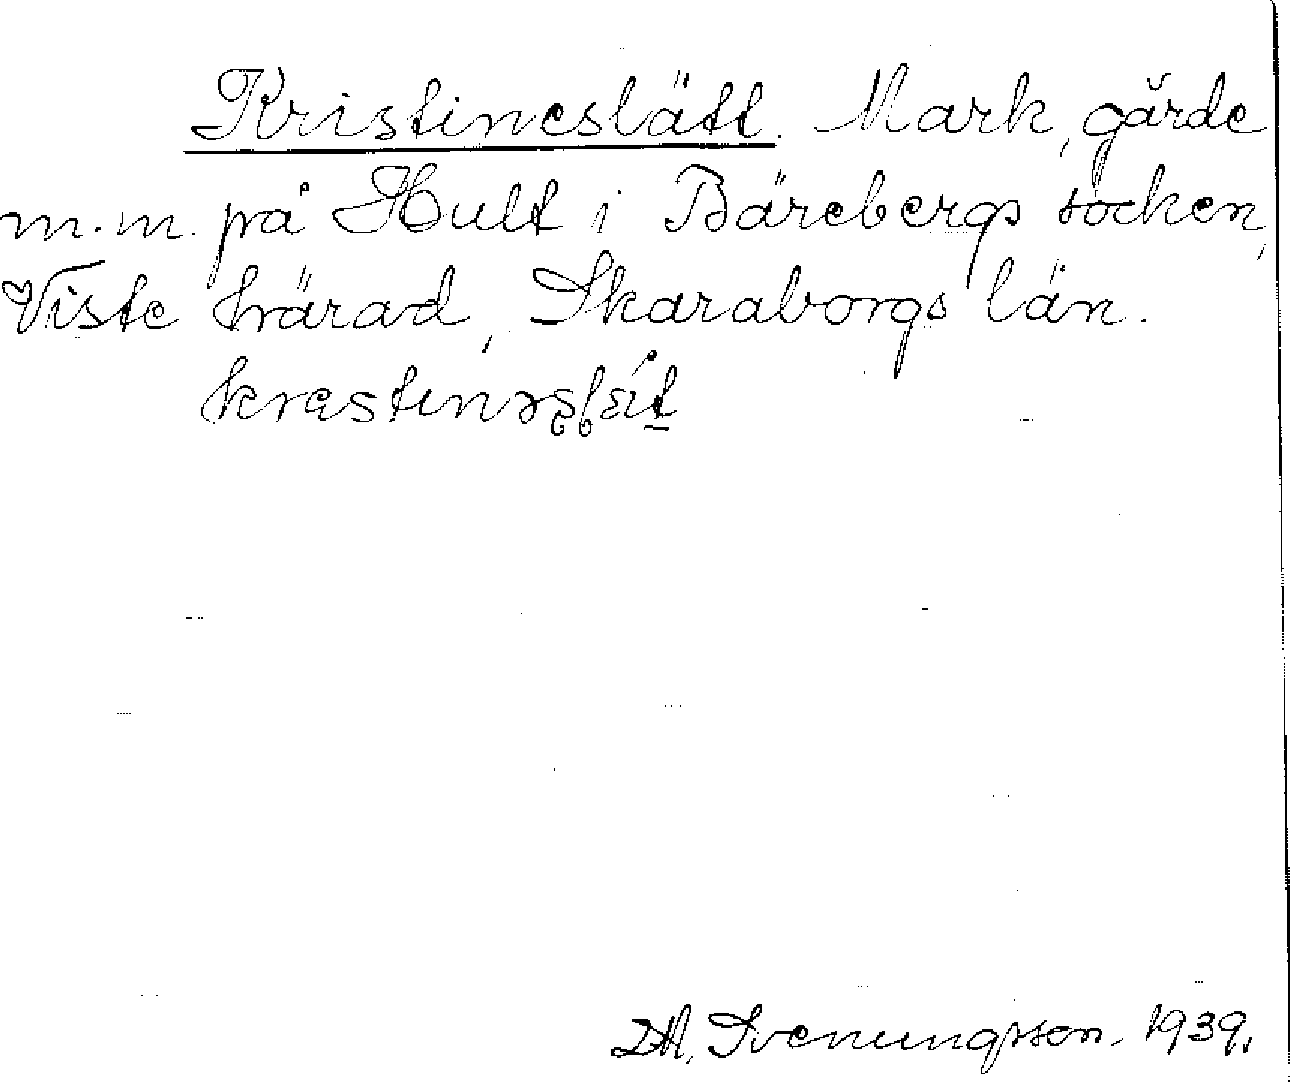 Kristineslätt. Mark, gärde
m.m. på Hult i Bärebergs socken,
Viste härad, Skaraborgs län.
Svenungsson. 1939.